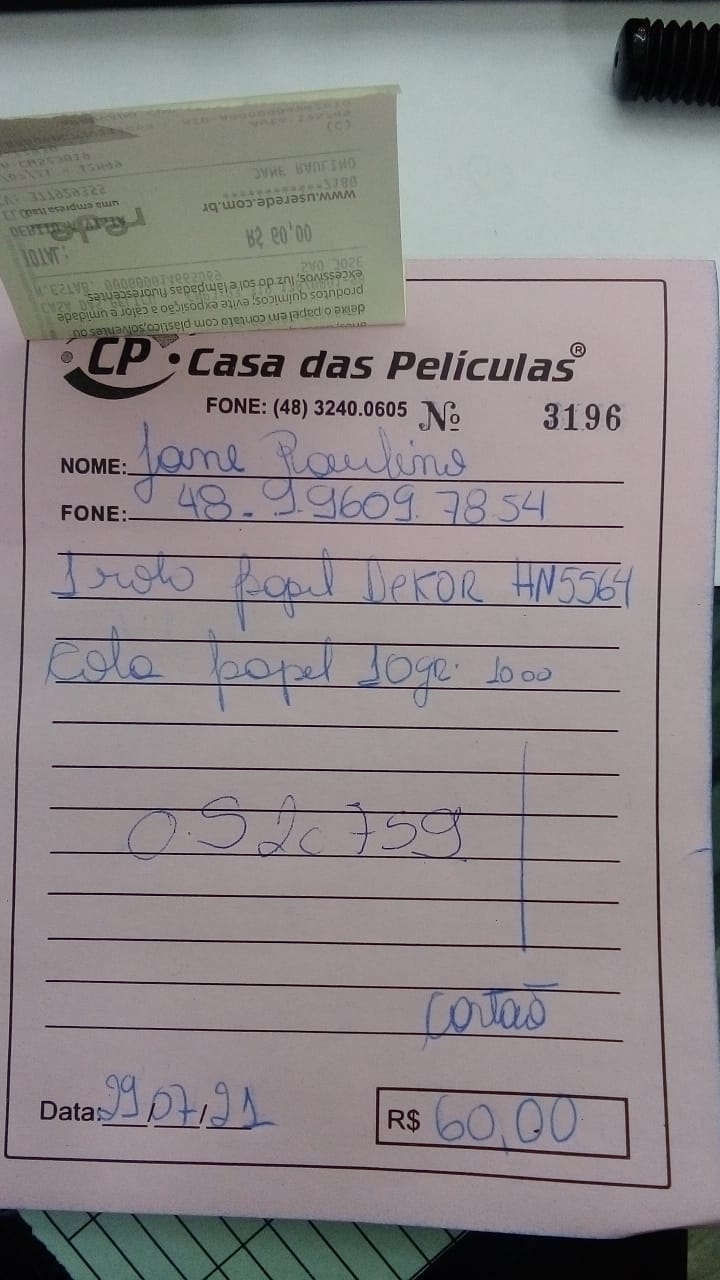 JANE RAULINO
************2180
www.userede.com.br
uma empresa Itaú
rede
R$ 60,00
TOTAL:
SAO JOSE
excessivos, luz do sol e lâmpadas fluorescentes.
produtos químicos; evite exposição a calor e umidade
deixe o papel em contato com plástico, solventes ou
CP • Casa das Películas®
FONE: (48) 3240.0605 Nº 3196
NOME: Jane Raulino
FONE: 48-9.9609.7854
1 rolo papel DeKOR HN5564
Cola papel 10gr. 1000
Cartaõ
Data: 29/07/21
R$ 60,00